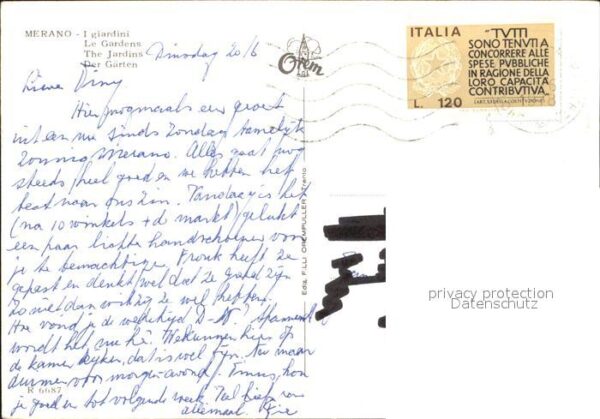 MERANO - I giardini
Le Gardens
The Jardins
Der Gärten
Dinsdag 20/6
Lieve Diny
Hier nogmaals een groet
uit een nu sinds Zondag tamelijk
zonnig Merano. Alles gaat nog
steeds heel goed en we hebben het
best naar ons zin. Vandaag is het
(na 10 winkels + d markt) gelukt
een paar lichte handschoenen voor
je te bemachtigen. Frouk heeft ze
gepast en denkt wel dat ze goed zijn
Zo niet dan wil ze wel hebben.
Hoe vond je de wedstrijd D-N? Spannend
wordt het nu hè? We kunnen hier op
de kamer kijken, dat is wel fijn. Nu maar
duimen voor morgenavond.
je goed en tot volgende week. Veel liefs van
allemaal.
R 6687
Orem
Ediz. F.LLI OREMPULLER - Trento
ITALIA
L. 120
"TUTTI
SONO TENUTI A
CONCORRERE ALLE
SPESE PUBBLICHE
IN RAGIONE DELLA
LORO CAPACITÀ
CONTRIBUTIVA."
privacy protection
Datenschutz